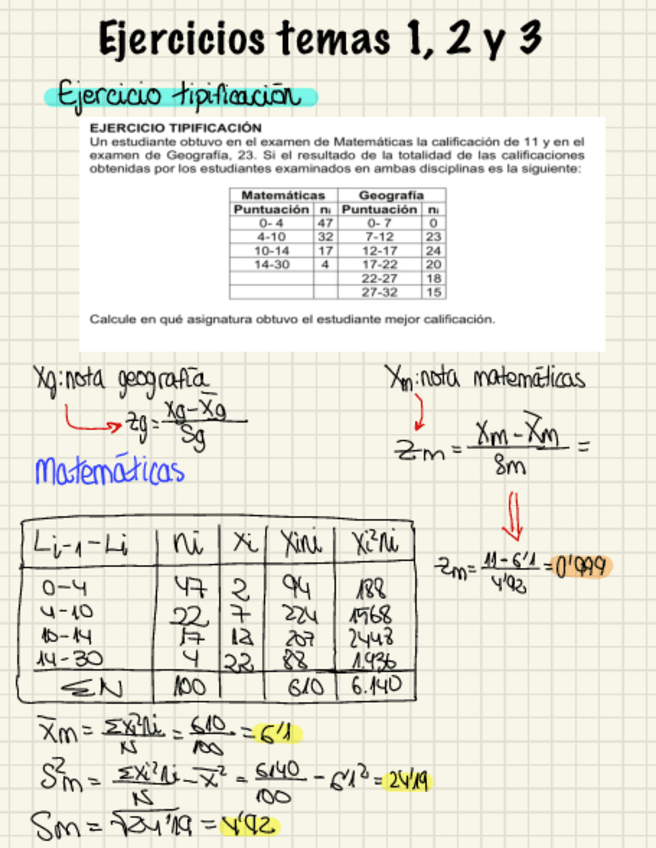 Ejercicios temas 1, 2 y 3
Ejercicio tipificación
EJERCICIO TIPIFICACIÓN
Un estudiante obtuvo en el examen de Matemáticas la calificación de 11 y en el
examen de Geografía, 23. Si el resultado de la totalidad de las calificaciones
obtenidas por los estudiantes examinados en ambas disciplinas es la siguiente:
Matemáticas Geografía
Puntuación nᵢ Puntuación nᵢ
0- 4 47 0- 7 0
4-10 32 7-12 23
10-14 17 12-17 24
14-30 4 17-22 20
22-27 18
27-32 15
Calcule en qué asignatura obtuvo el estudiante mejor calificación.
Xg: nota geografía
Zg = (Xg - X̄g) / Sg
Xm: nota matemáticas
Zm = (Xm - X̄m) / Sm =
Zm = (11 - 6'1) / 4'92 = 0'999
Matemáticas
Li-1 - Li ni xi xini xi²ni
0-4 47 2 94 188
4-10 22 7 224 1568
10-14 17 12 207 2448
14-30 4 22 88 1.936
ΣN 100 610 6.140
X̄m = Σxi²ni / N = 610 / 100 = 6'1
S²m = Σxi²ni / N - X̄² = 6140 / 100 - 6'1² = 24'19
Sm = √24'19 = 4'92